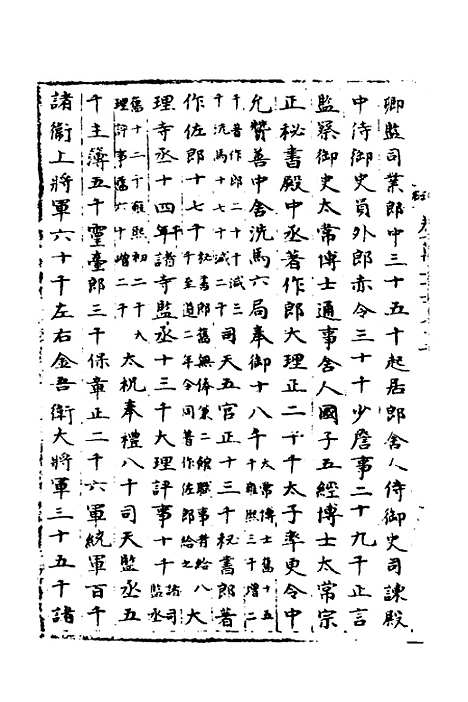 卿監司業郎中三十五十起居郎舍人侍御史司諫殿
中侍御史員外郎赤令三十千少詹事二十九千正言
監察御史太常博士通事舍人國子五經博士太常宗
正秘書殿中丞著作郎大理正二十千太子率更令中
允贊善中舍洗馬六局奉御十八千太常博士舊十五
千雍熙三千增二
千著作郎二十千減三
千洗馬十七千減二千司天五官正十三千秘書郎著
作佐郎十七千秘書郎舊無俸兼二館職事者給八
千至道二年令同著作佐郎給之大
理寺丞十四千諸寺監丞十三千大理評事十千諸司
監丞
舊十二千雍熙初二千大
理評事舊六十增二千太祝奉禮八十司天監丞五
千主簿五千靈臺郎三千保章正二千六軍統軍百千
諸衛上將軍六十千左右金吾衛大將軍三十五千諸